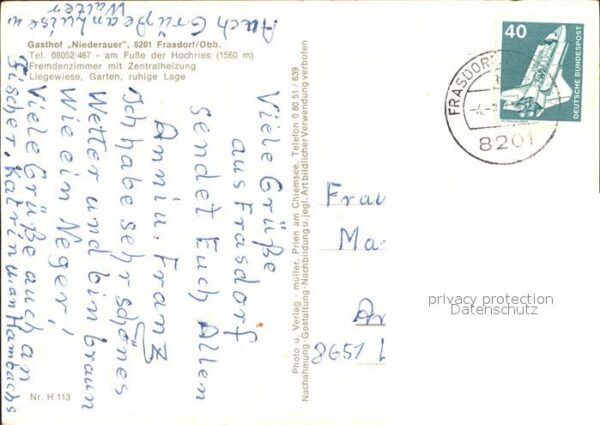 Auch Grüße an Luise u
Walter
Gasthof „Niederauer", 8201 Frasdorf/Obb.
Tel. 08052/467 - am Fuße der Hochries (1560 m)
Fremdenzimmer mit Zentralheizung
Liegewiese, Garten, ruhige Lage
Viele Grüße
aus Frasdorf
sendet Euch Allen
Anni u. Franz
Ich habe sehr schönes
Wetter und bin braun
Wie ein Neger!
Viele Grüße auch an
Fischer, Katrin u. an Hambachs
Nr. H 113
Photo u. Verlag - müller, Prien am Chiemsee, Telefon 0 80 51 / 639
Nachahmung-Gestaltung-Nachbildung u. jegl. Art bildlicher Verwertung verboten
40
DEUTSCHE BUNDESPOST
FRASDORF
8201
Frau
Ma
8651
privacy protection
Datenschutz